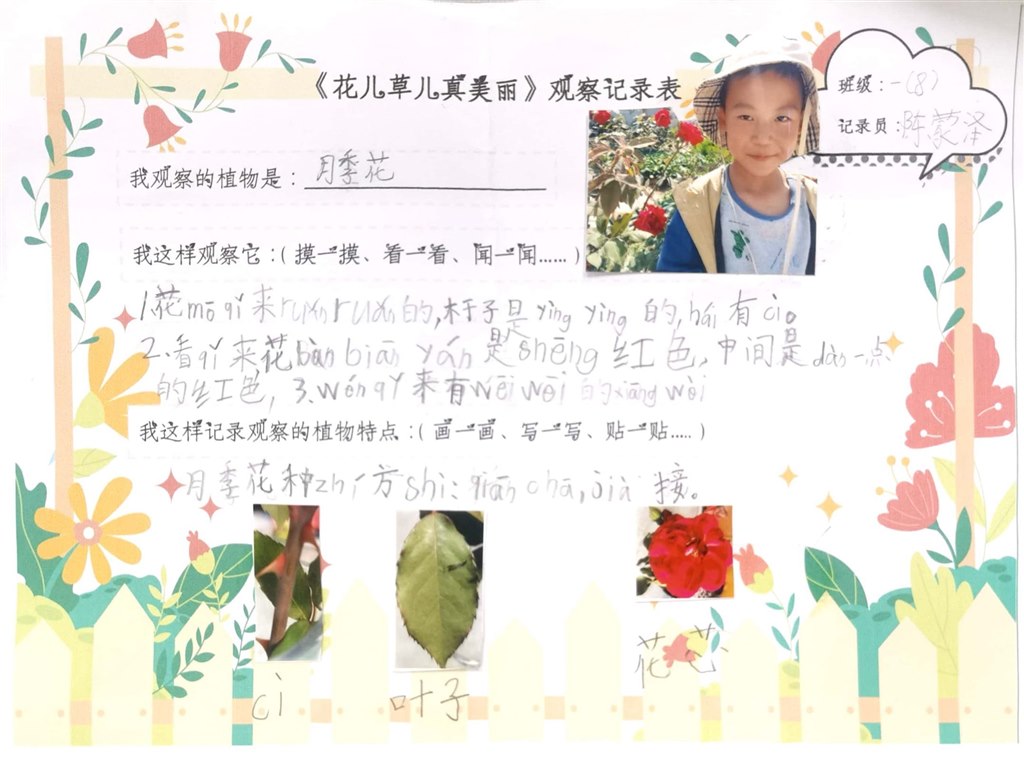 《花儿草儿真美丽》观察记录表
班级：一（8）
记录员：陈蒙泽
我观察的植物是：月季花
我这样观察它：（摸一摸、看一看、闻一闻……）
1.花mō qǐ来ruǎn ruǎn的，杆子是yìng yìng的，hái有cì。
2.看qǐ来花bàn biān yán是shēng红色，中间是dàn一点
的红色，3.wén qǐ来有wēi wēi的xiāng wèi
我这样记录观察的植物特点：（画一画、写一写、贴一贴……）
月季花种zhí方shì：qiān chā，jià接。
cì
叶子
花芯